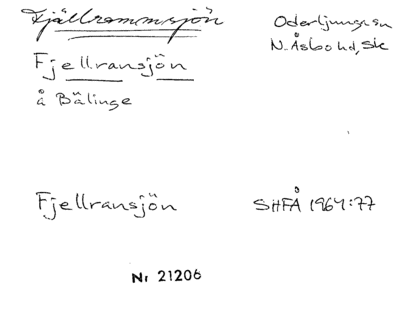 Fjällrammsjön
Oderljunga sn
N. Åsbo hd, Sk
Fjellransjön
å Bälinge
Fjellransjön
SHFÅ 1964:77
Nr 21206